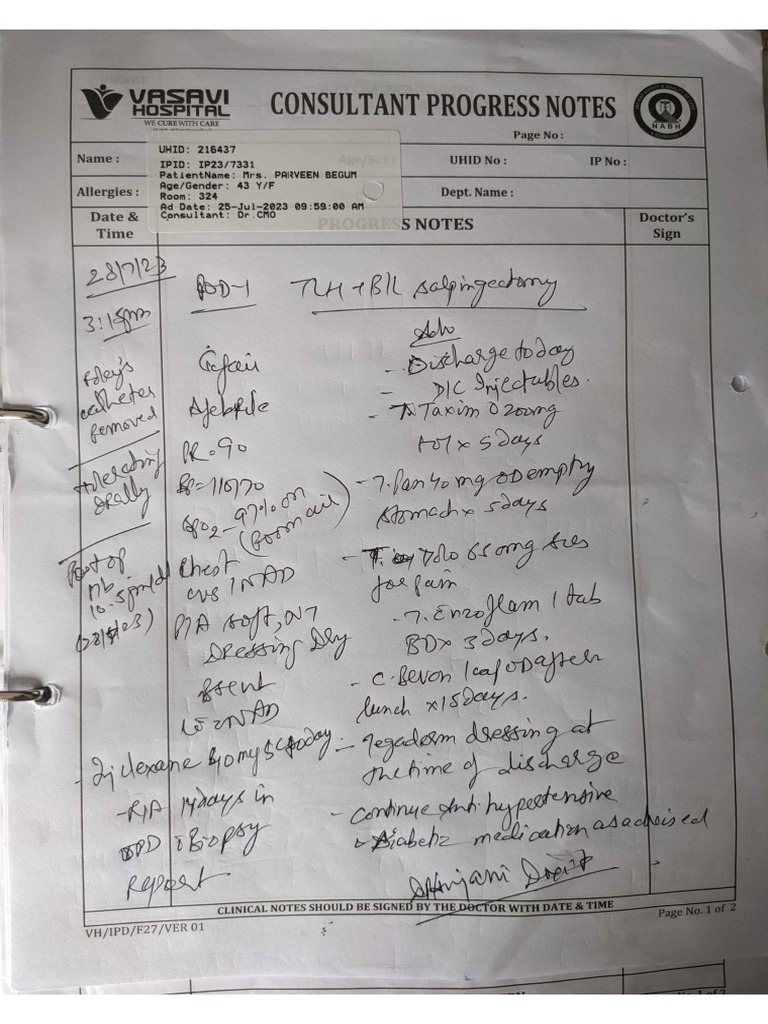 VASAVI
HOSPITAL
WE CURE WITH CARE
CONSULTANT PROGRESS NOTES
NABH
Page No :
Name :
UHID: 216437
IPID: IP23/7331
PatientName: Mrs. PARVEEN BEGUM
Age/Gender: 43 Y/F
Room: 324
Ad Date: 25-Jul-2023 09:59:00 AM
Consultant: Dr.CMO
Age/Sex :
UHID No :
IP No :
Allergies :
Dept. Name :
Date &
Time
PROGRESS NOTES
Doctor's
Sign
28/7/23
3:15pm
Foley's
catheter
removed
Tolerating
orally
POD-1 TLH + B/L salpingectomy
G. fair
Afebrile
PR = 90
BP = 110/70
SPO2 - 97% on
(Room air)
Chest
CVS / NAD
P/A soft, NT
Dressing Dry
Adv
- Discharge today
- D/C Injectables.
- T. Taxim O 200mg
x 5 days
- T. Pan 40 mg OD empty
stomach x 5 days
- T. Dolo 65mg
for pain
- T. Enzoflam 1 tab
BD x 3 days.
- C. Bevon 1 cap OD after
lunch x 15 days.
- Tegaderm dressing at
the time of discharge
- Continue Anti hypertensive
Diabetic medication as advised
- Inj clexane 40mg SC today
- R/A 14 days in
OPD Biopsy
Report
CLINICAL NOTES SHOULD BE SIGNED BY THE DOCTOR WITH DATE & TIME
VH/IPD/F27/VER 01
Page No. 1 of 2